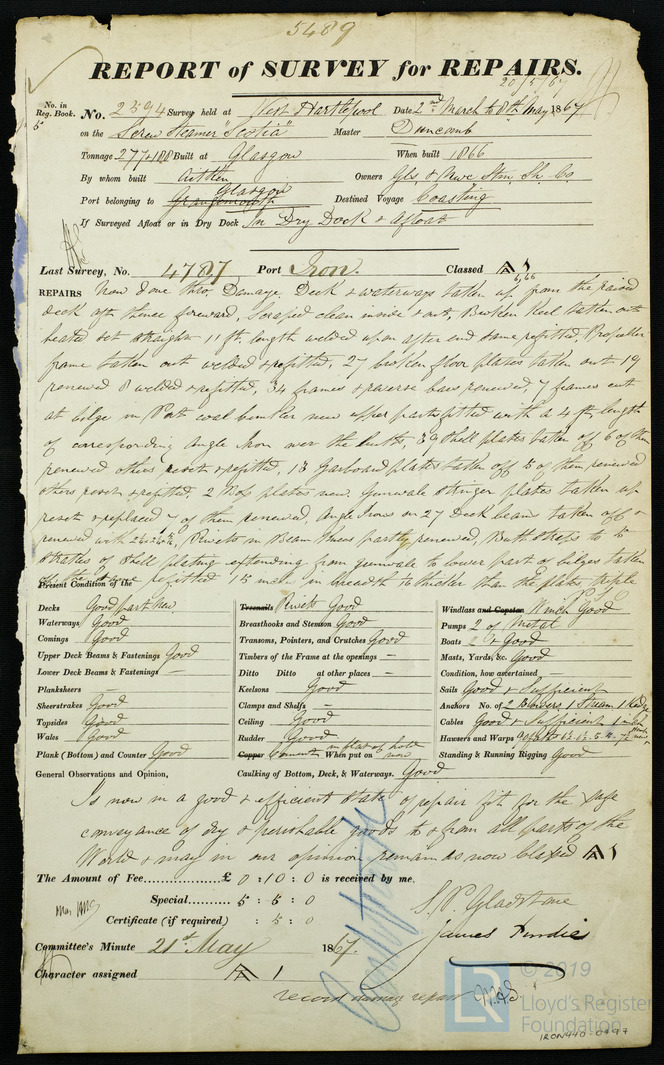 5489
REPORT of SURVEY for REPAIRS.
20/5/67
No. in Reg. Book. No. 2394 Survey held at West Hartlepool Date 2nd March to 8th May 1867
5 on the Screw Steamer "Scotia" Master Duncomb
Tonnage 277 & 188 Built at Glasgow When built 1866
By whom built Aitken Owners Gls. & Stm. Sh. Co.
Glasgow
Port belonging to Grangemouth Destined Voyage Coasting
If Surveyed Afloat or in Dry Dock In Dry Dock & Afloat
Last Survey, No. 4787 Port Iron. Classed A 1
6,66
REPAIRS Now done thro Damage Deck & waterways taken up from the raised
deck aft thence foreward, Scraped clean inside & out, Broken Keel taken out
heated set straight 11 ft. length welded upon after end same refitted, Propeller
frame taken out welded & refitted, 27 broken floor plates taken out 19
renewed 8 welded & refitted, 34 frames & reverse bars renewed, 7 frames cut
at bilge in Port coal bunker new upper parts fitted with a 4 ft. length
of corresponding Angle Iron over the butts, 39 Shell plates taken off 6 of them
renewed others reset & refitted, 13 Garboard plates taken off 5 of them renewed
others reset & refitted, 2 plates new. Gunwale Stringer plates taken up
reset & replaced 7 of them renewed, Angle Irons on 27 Deck beams taken off &
renewed with Rivets in Beam Knees partly renewed, Butt straps to 5
strakes of Shell plating extending from gunwale to lower part of bilges taken
refitted 15 in breadth & thicker than the plates triple
Present Condition of the
Decks Good part New
Waterways Good
Comings Good
Upper Deck Beams & Fastenings Good
Lower Deck Beams & Fastenings —
Planksheers
Sheerstrakes Good
Topsides Good
Wales Good
Plank (Bottom) and Counter Good
Treenails Rivets Good
Breasthooks and Stemson Good
Transoms, Pointers, and Crutches Good
Timbers of the Frame at the openings —
Ditto Ditto at other places —
Keelsons Good
Clamps and Shelfs —
Ceiling Good
Rudder Good
Copper Cement in flat of hold When put on now
Windlass and Capstan Winch Good
Pumps 2 of Metal
Boats 2 & Good
Masts, Yards, &c. Good
Condition, how ascertained —
Sails Good & Sufficient
Anchors No. of 2 Bowers 1 Stream 1 Kedge
Cables Good & Sufficient
Hawsers and Warps
Standing & Running Rigging Good
General Observations and Opinion, Caulking of Bottom, Deck, & Waterways. Good
Is now in a good & efficient state of repair fit for the safe
conveyance of dry & perishable goods to & from all parts of the
World & may in our opinion remain as now classed A 1
The Amount of Fee............... £ 0 : 10 : 0 is received by me.
Special.......... 5 : 5 : 0
Certificate (if required) : 5 : 0
S. P. Gladstone
James Purdie
Committee's Minute 21st May 1867.
Character assigned A 1
record damage repair
© 2019
LR Lloyd's Register
Foundation
IRON440-0497